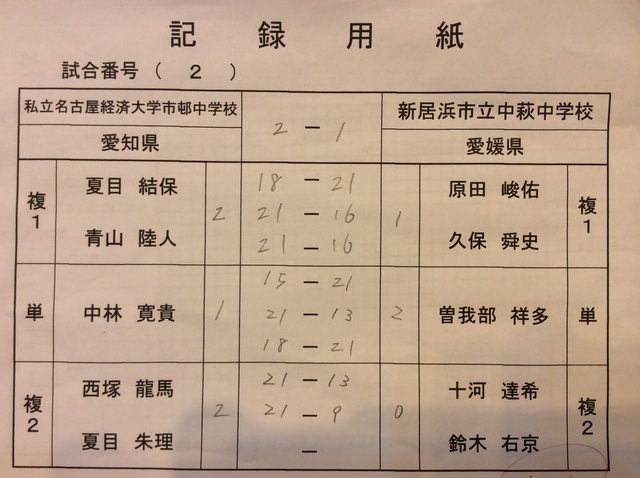 記録用紙
試合番号 ( 2 )
私立名古屋経済大学市邨中学校 2 − 1 新居浜市立中萩中学校
愛知県 愛媛県
複1 夏目 結保 2 18 − 21 1 原田 峻佑 複1
21 − 16
青山 陸人 21 − 16 久保 舜史
15 − 21
単 中林 寛貴 1 21 − 13 2 曽我部 祥多 単
18 − 21
複2 西塚 龍馬 2 21 − 13 0 十河 達希 複2
21 − 9
夏目 朱理 − 鈴木 右京